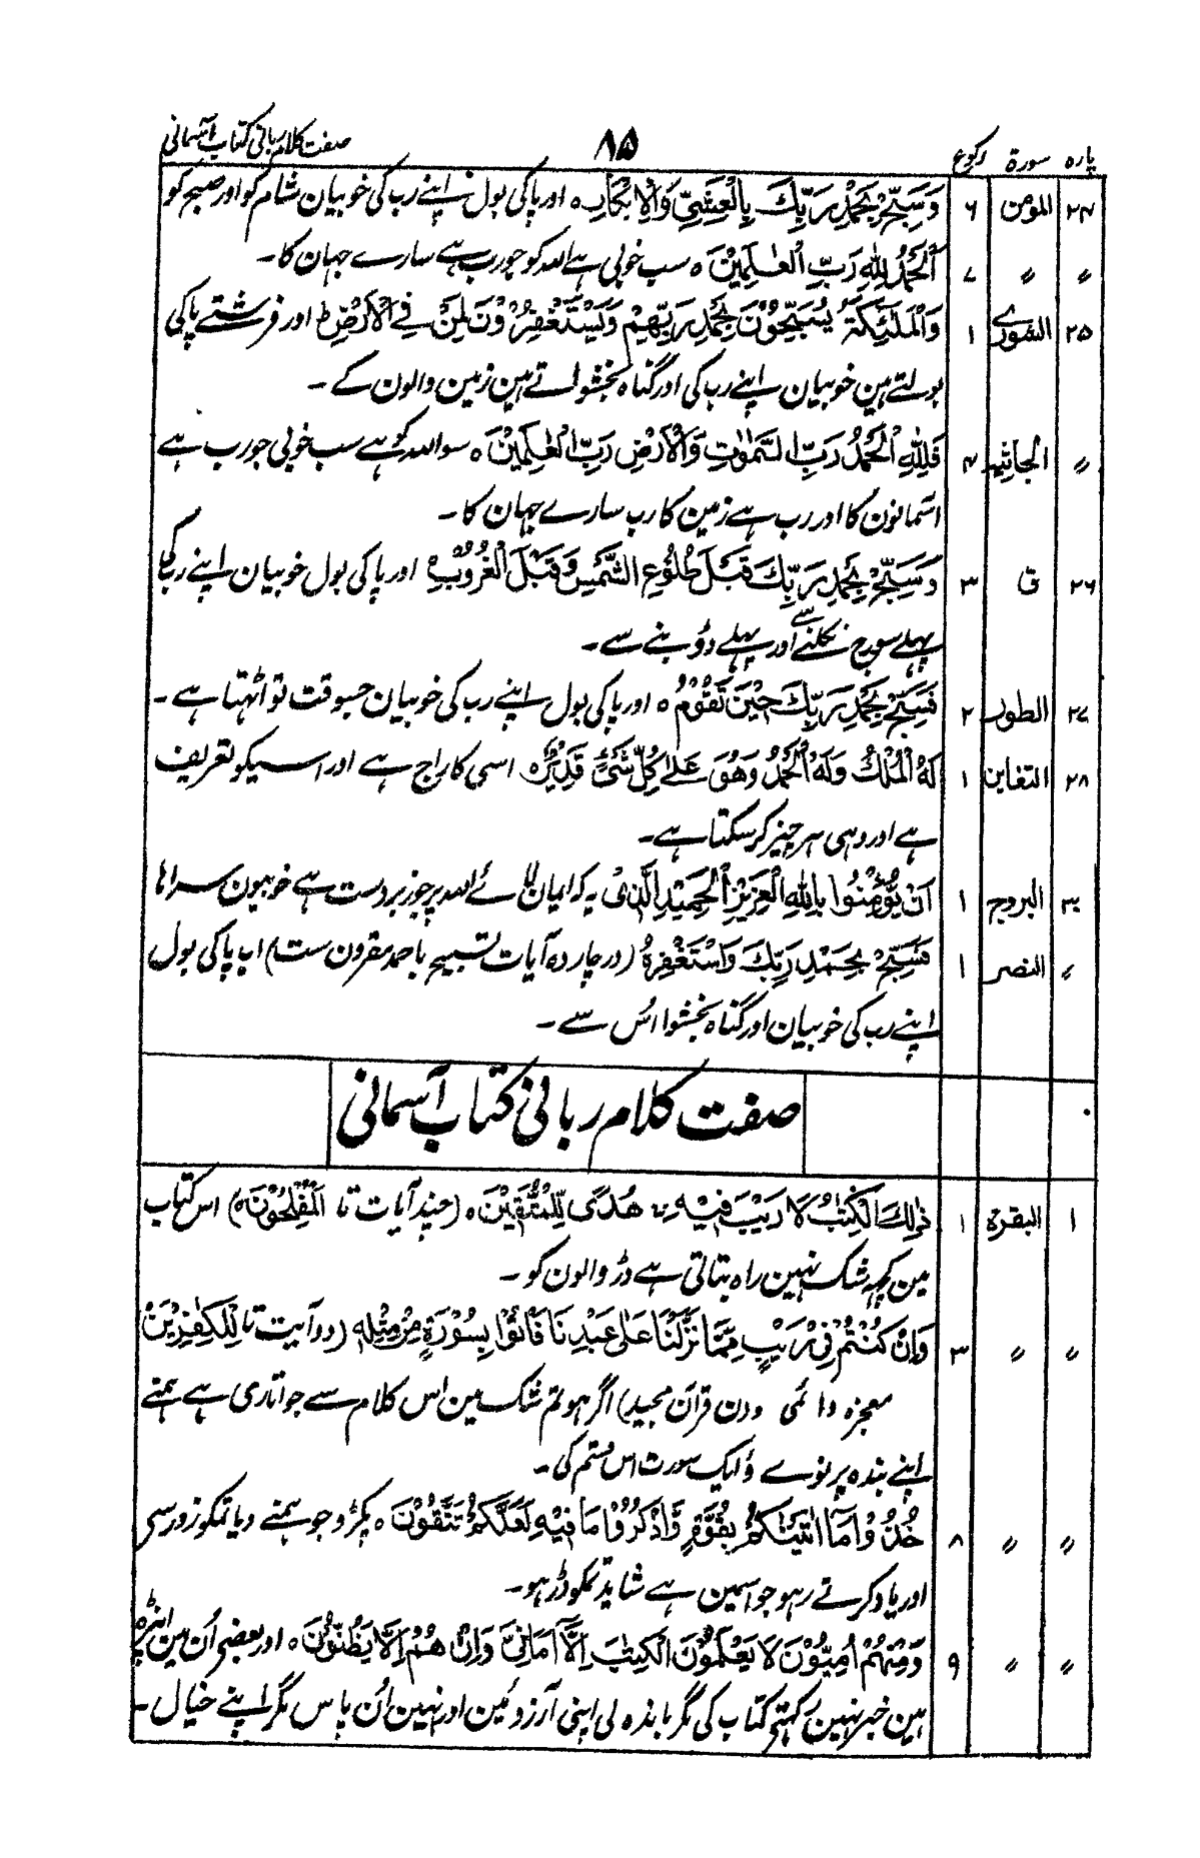 پارہ سورۃ رکوع ۸۵ صفت کلام ربانی کتاب آسمانی
۲۴ المومن ۶ وَسَبِّحْ بِحَمْدِ رَبِّكَ بِالْعَشِيِّ وَالْاِبْكَارِ ه اور پاکی بول اپنے رب کی خوبیان شام کو اور صبح کو
〃 〃 ۷ اَلْحَمْدُ لِلّٰهِ رَبِّ الْعٰلَمِيْنَ ه سب خوبی ہے اللہ کو جو رب ہے سارے جہان کا۔
۲۵ الشورے ۱ وَالْمَلٰٓئِكَةُ يُسَبِّحُوْنَ بِحَمْدِ رَبِّهِمْ وَيَسْتَغْفِرُوْنَ لِمَنْ فِي الْاَرْضِ ط اور فرشتے پاکی
بولتے ہین خوبیان اپنے رب کی اور گناہ بخشواتے ہین زمین والون کے ۔
〃 الجاثیہ ۴ فَلِلّٰهِ الْحَمْدُ رَبِّ السَّمٰوٰتِ وَالْاَرْضِ رَبِّ الْعٰلَمِيْنَ ه سو اللہ کو ہے سب خوبی جو رب ہے
اسمانون کا اور رب ہے زمین کا رب سارے جہان کا۔
۲۶ ق ۳ وَسَبِّحْ بِحَمْدِ رَبِّكَ قَبْلَ طُلُوْعِ الشَّمْسِ وَقَبْلَ الْغُرُوْبِ ه اور پاکی بول خوبیان اپنے رب کی
پہلے سورج نکلنے سے اور پہلے ڈوبنے سے۔
۲۷ الطور ۲ فَسَبِّحْ بِحَمْدِ رَبِّكَ حِيْنَ تَقُوْمُ ه اور پاکی بول اپنے رب کی خوبیان جسوقت تو اٹہتا ہے۔
۲۸ التغابن ۱ لَهُ الْمُلْكُ وَلَهُ الْحَمْدُ وَهُوَ عَلٰى كُلِّ شَيْءٍ قَدِيْرٌ ه اسی کا راج ہے اور اسیکو تعریف
ہے اور وہی ہر چیز کر سکتا ہے۔
۳۰ البروج ۱ اَنْ يُّؤْمِنُوْا بِاللّٰهِ الْعَزِيْزِ الْحَمِيْدِ الَّذِيْ یہ کہ ایمان لائے اللہ پر جو زبردست ہے خوبیون سراہا
〃 النصر ۱ فَسَبِّحْ بِحَمْدِ رَبِّكَ وَاسْتَغْفِرْهُ (در چاردہ آیات تسبیح با حمد مقرون ست) اب پاکی بول
اپنے رب کی خوبیان اور گناہ بخشوا اُس سے ۔
صفت کلام ربانی کتاب آسمانی
۱ البقرۃ ۱ ذٰلِكَ الْكِتٰبُ لَا رَيْبَ فِيْهِ هُدًى لِّلْمُتَّقِيْنَ ه (چند آیات تا الْمُفْلِحُوْنَ ه) اس کتاب
مین کچہ شک نہین راہ بتاتی ہے ڈر والون کو ۔
〃 〃 ۳ وَاِنْ كُنْتُمْ فِيْ رَيْبٍ مِّمَّا نَزَّلْنَا عَلٰى عَبْدِنَا فَاْتُوْا بِسُوْرَةٍ مِّنْ مِّثْلِهٖ (دو آیت تا لِلْكٰفِرِيْنَ
معجزہ دائمی ودن قرآن مجید) اگر ہو تم شک مین اس کلام سے جو اتاری ہے ہمنے
اپنے بندہ پر تو لے آؤ ایک سورت اس قسم کی۔
〃 〃 ۸ خُذُوْا مَآ اٰتَيْنٰكُمْ بِقُوَّةٍ وَّاذْكُرُوْا مَا فِيْهِ لَعَلَّكُمْ تَتَّقُوْنَ ه پکڑو جو ہمنے دیا تمکو زور سی
اور یاد کرتے رہو جو اسمین ہے شاید تمکو ڈر ہو۔
〃 〃 ۹ وَمِنْهُمْ اُمِّيُّوْنَ لَا يَعْلَمُوْنَ الْكِتٰبَ اِلَّآ اَمَانِيَّ وَاِنْ هُمْ اِلَّا يَظُنُّوْنَ ه اور بعضے اُن مین انپڑہ
ہین خبر نہین رکہتے کتاب کی مگر باندہ لی اپنی آرزوئین اور نہین اُن پاس مگر اپنے خیال ۔